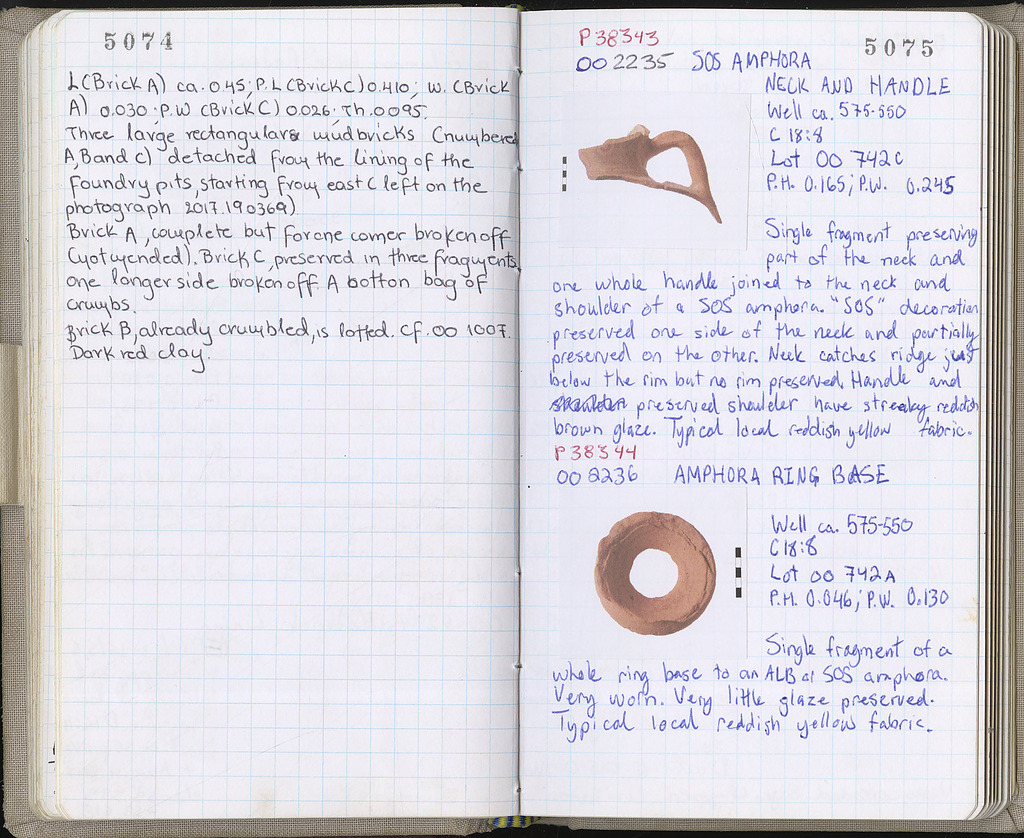 5074
L (Brick A) ca. 0.45; P.L (Brick C) 0.410; W. (Brick
A) 0.030. P.W (Brick C) 0.026. Th. 0.095.
Three large rectangular mudbricks (numbered
A, B and C) detached from the lining of the
foundry pits, starting from east (left on the
photograph 2017.19.0369)
Brick A, complete but for one corner broken off
(not mended). Brick C, preserved in three fragments,
one longer side broken off. A botton bag of
crumbs.
Brick B, already crumbled, is lotted. Cf. OO 1007.
Dark red clay.
5075
P 38343
OO 2235 SOS AMPHORA
NECK AND HANDLE
Well ca. 575-550
C 18:8
Lot OO 742C
P.H. 0.165; P.W. 0.245
Single fragment preserving
part of the neck and
one whole handle joined to the neck and
shoulder of a SOS amphora. "SOS" decoration
preserved one side of the neck and partially
preserved on the other. Neck catches ridge just
below the rim but no rim preserved. Handle and
preserved shoulder have streaky reddish
brown glaze. Typical local reddish yellow fabric.
P 38344
OO 2236 AMPHORA RING BASE
Well ca. 575-550
C 18:8
Lot OO 742A
P.H. 0.046; P.W. 0.130
Single fragment of a
whole ring base to an ALB or SOS amphora.
Very worn. Very little glaze preserved.
Typical local reddish yellow fabric.